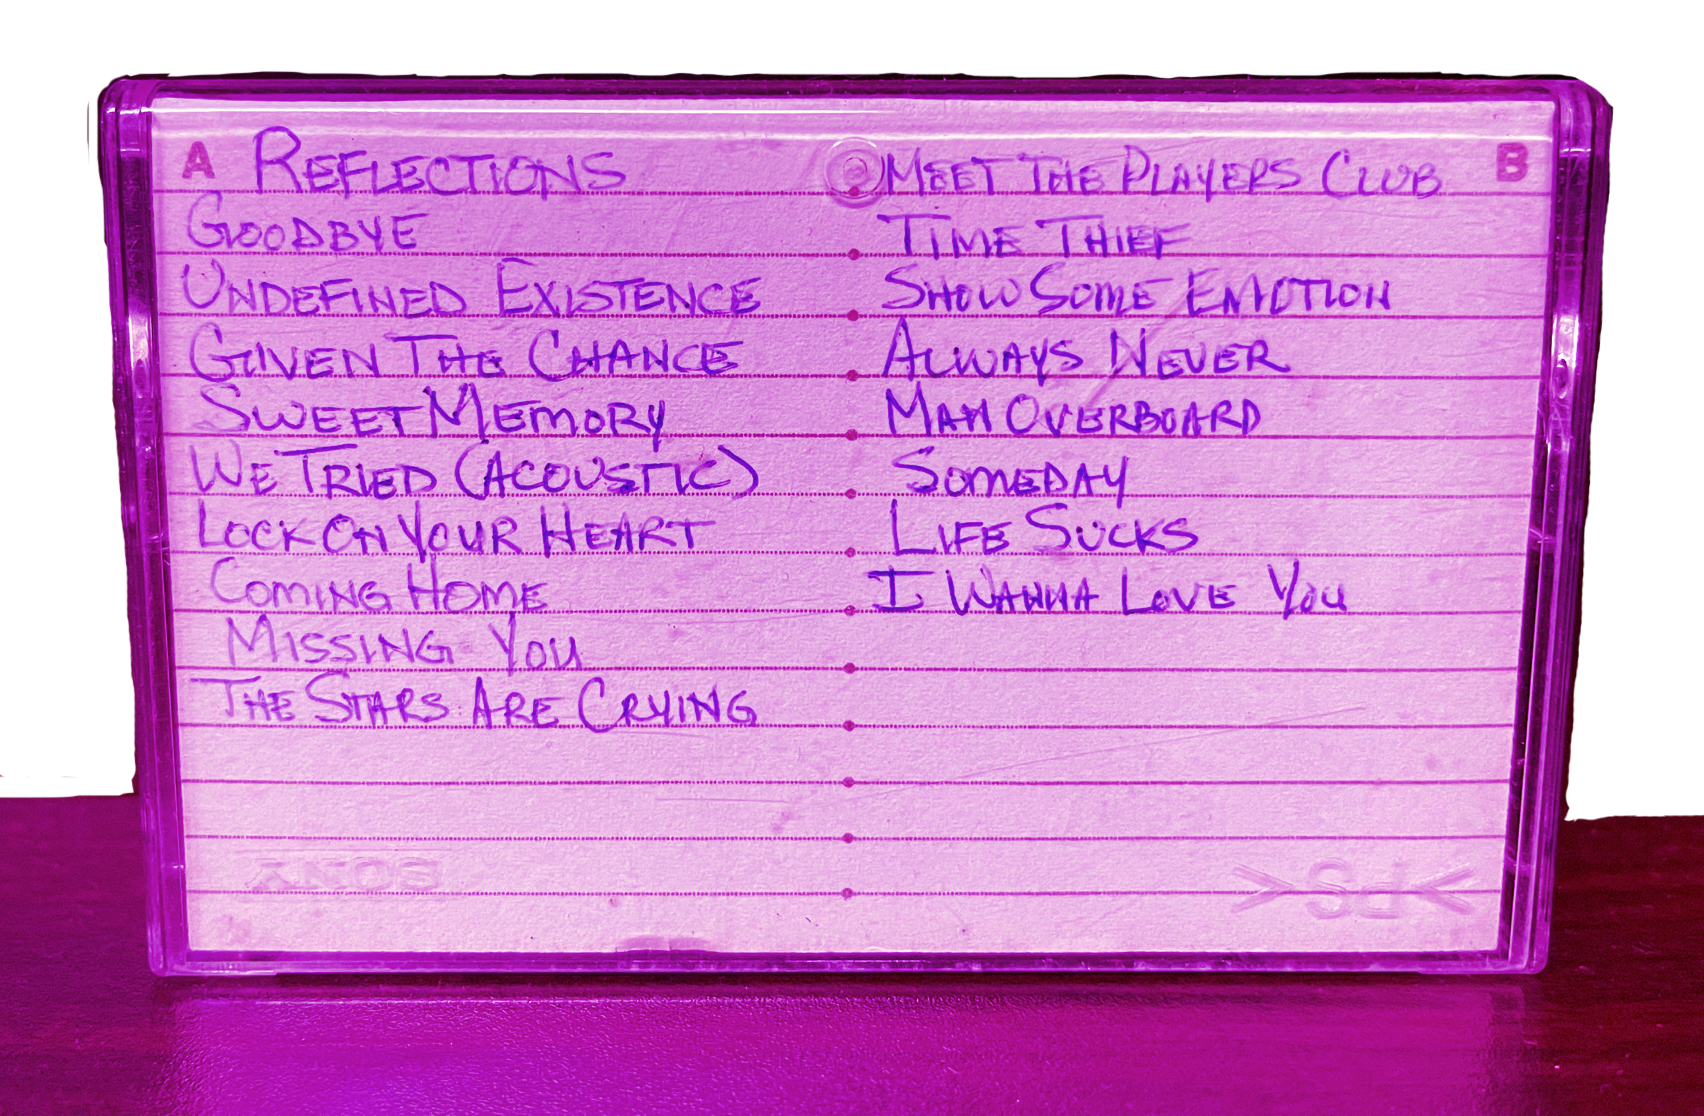 A REFLECTIONS
GOODBYE
UNDEFINED EXISTENCE
GIVEN THE CHANCE
SWEET MEMORY
WE TRIED (ACOUSTIC)
LOCK ON YOUR HEART
COMING HOME
MISSING YOU
THE STARS ARE CRYING
MEET THE PLAYERS CLUB B
TIME THIEF
SHOW SOME EMOTION
ALWAYS NEVER
MAN OVERBOARD
SOMEDAY
LIFE SUCKS
I WANNA LOVE YOU
SONY
>PS<